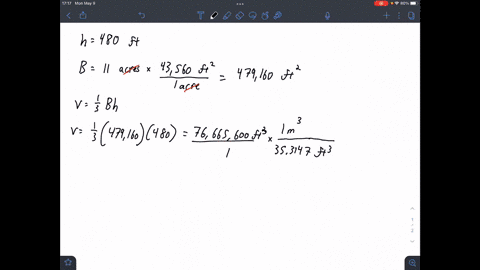 17:17 Mon May 9
60%
h = 480 ft
B = 11 acres × 43,560 ft² / 1 acre = 479,160 ft²
V = 1/3 Bh
V = 1/3 (479,160)(480) = 76,665,600 ft³ / 1 × 1 m³ / 35.3147 ft³